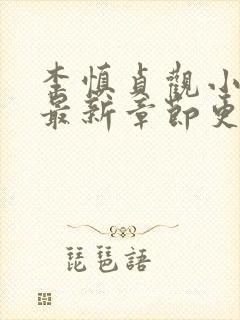 李慎貞觀小
最新章節更
琵琶語